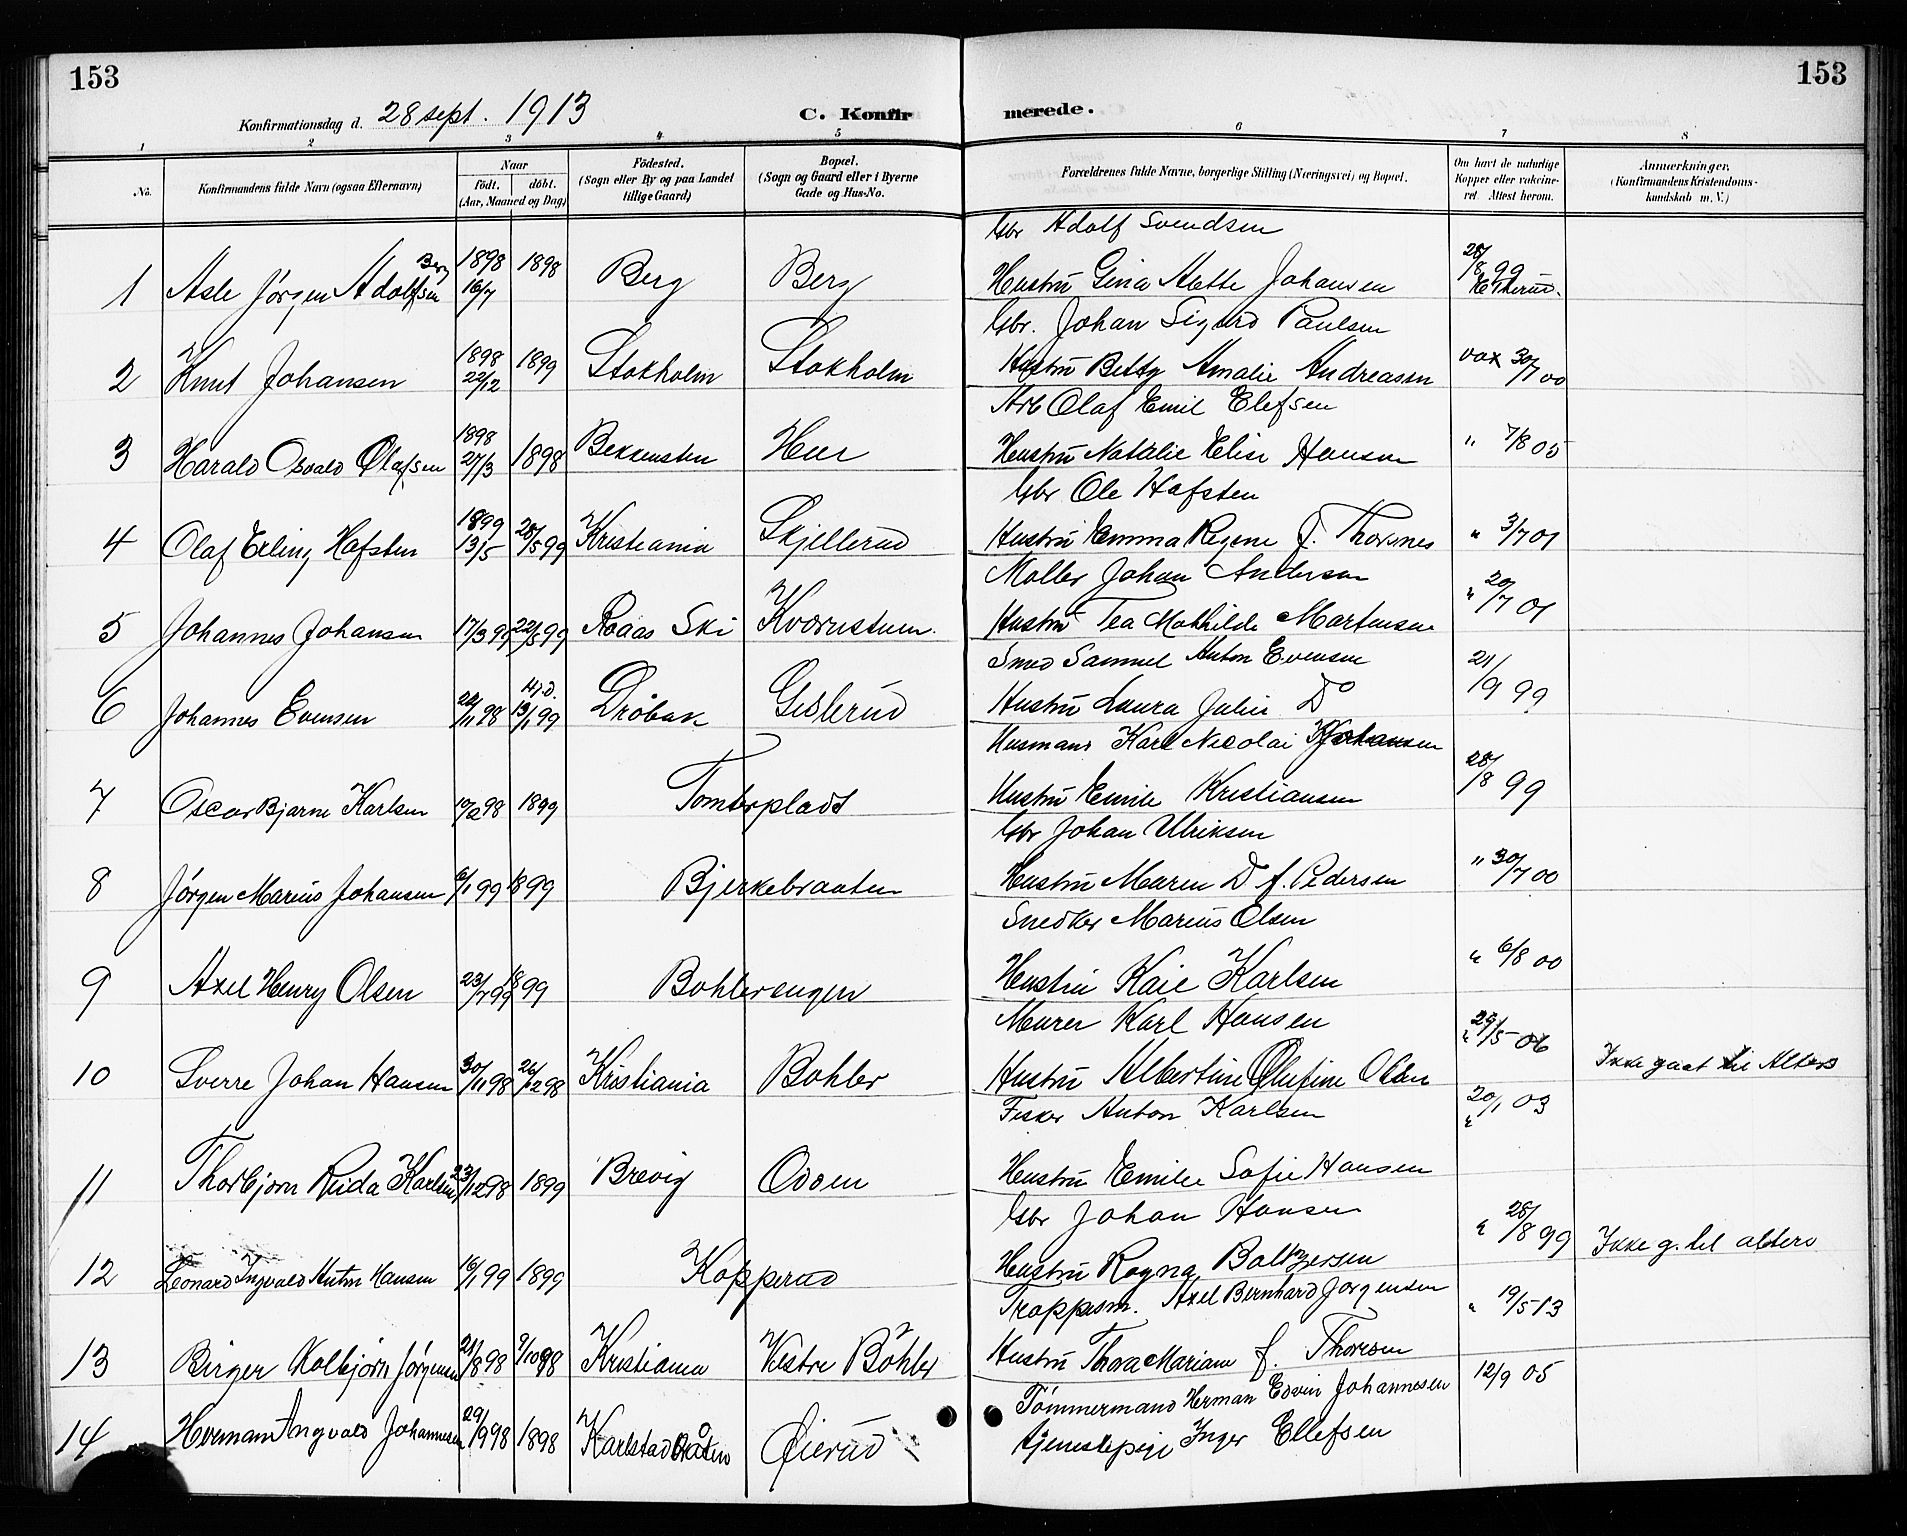 153
153
Konfirmationsdag d. 28 sept. 1913
C. Konfirmerede.
1 2 3 4 5 6 7 8
No.
Konfirmandens fulde Navn (ogsaa Efternavn)
Naar
födt. döbt.
(Aar, Maaned og Dag)
Födested.
(Sogn eller By og paa Landet
tillige Gaard)
Bopæl.
(Sogn og Gaard eller i Byerne
Gade og Hus-No.
Forældrenes fulde Navne, borgerlige Stilling (Næringsvei) og Bopæl.
Om havt de naturlige
Kopper eller vakcine-
ret Attest herom.
Anmærkninger,
(Konfirmandens Kristendoms-
kundskab m. V.)
Gbr Adolf Svendsen
1 Asle Jörgen Adolfsen Berg 1898 16/7 1898 Berg Berg Hustrü Gina Mette Johansen 28/8 99
Gbr. Johan Sigurd Paulsen
2 Knut Johansen 1898 22/12 1899 Stokholm Stokholm Hustrü Betty Amalie Andreassen vax 30/7 00
Arb Olaf Emil Elefsen
3 Harald Osvald Olafsen 1898 27/3 1898 Bekkensten Heer Hustrü Natalie Elise Hansen " 7/8 05
Gbr Ole Hafsten
4 Olaf Erling Hafsten 1899 13/5 28/5 99 Kristiania Skjellerud Hustrü Emma Regine f. Thorsnes " 3/7 01
Moller Johan Andersen
5 Johannes Johansen 17/3 99 22/5 99 Raaas Ski Kvornstuen. Hustrü Tea Mathilde Martensen " 20/7 01
Smed Samuel Anton Evensen
6 Johannes Evensen 20/11 98 Hj.d. 13/1 99 Dröbak Gislerud Hustrü Laura Julie Do 21/9 99
Husmans Karl Nicolai Johansen
7 Oscar Bjarne Karlsen 10/2 98 1899 Tomterplads Hustrü Emilie Kristiansen 28/8 99
Gbr Johan Ulriksen
8 Jörgen Marius Johansen 6/1 99 1899 Bjerkebraaten Hustrü Maren D f. Pedersen " 30/7 00
Snedker Marius Olsen
9 Axel Henry Olsen 23/7 99 1899 Bohlerengen Hustrü Kaie Karlsen " 6/8 00
Murer Karl Hansen
10 Sverre Johan Hansen 30/11 98 26/12 98 Kristiania Bohler Hustrü Albertine Olufine Olsen " 29/5 06 Ikke gaat til Alters
Fisker Anton Karlsen " 20/1 03
11 Thorbjorn Reida Karlsen 23/12 98 1899 Brevig Odden Hustrü Emilie Sofie Hansen
Gbr Johan Hansen
12 Leonard Ingvald Anton Hansen 16/1 99 1899 Kopperud Hustrü Ragna Baltzersen " 28/8 99 Ikke g. til alters
Trappem. Axel Bernhard Jorgensen
13 Birger Kolbjörn Jörgensen 21/8 98 9/10 98 Kristiania Vestre Böhler Hustrü Thora Mariane f. Thoresen " 19/5 13
Tömmermand Herman Edvin Johannesen
14 Herman Ingvald Johannesen 29/9 98 1898 Karlstad Öierud tjenestepige Inger Ellefsen 12/9 05